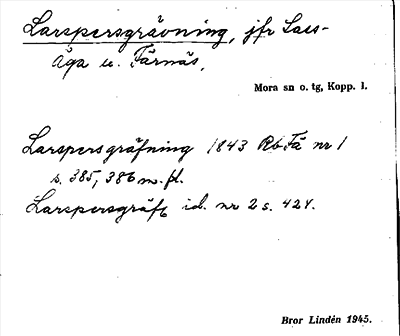 Larspersgrävning, jfr Lars-
åga u. Färnäs.
Mora sn o. tg, Kopp. l.
Larspersgräfning 1843 RbFä nr 1
s. 385, 386 m. fl.
Larspersgräft id. nr 2 s. 424.
Bror Lindén 1945.